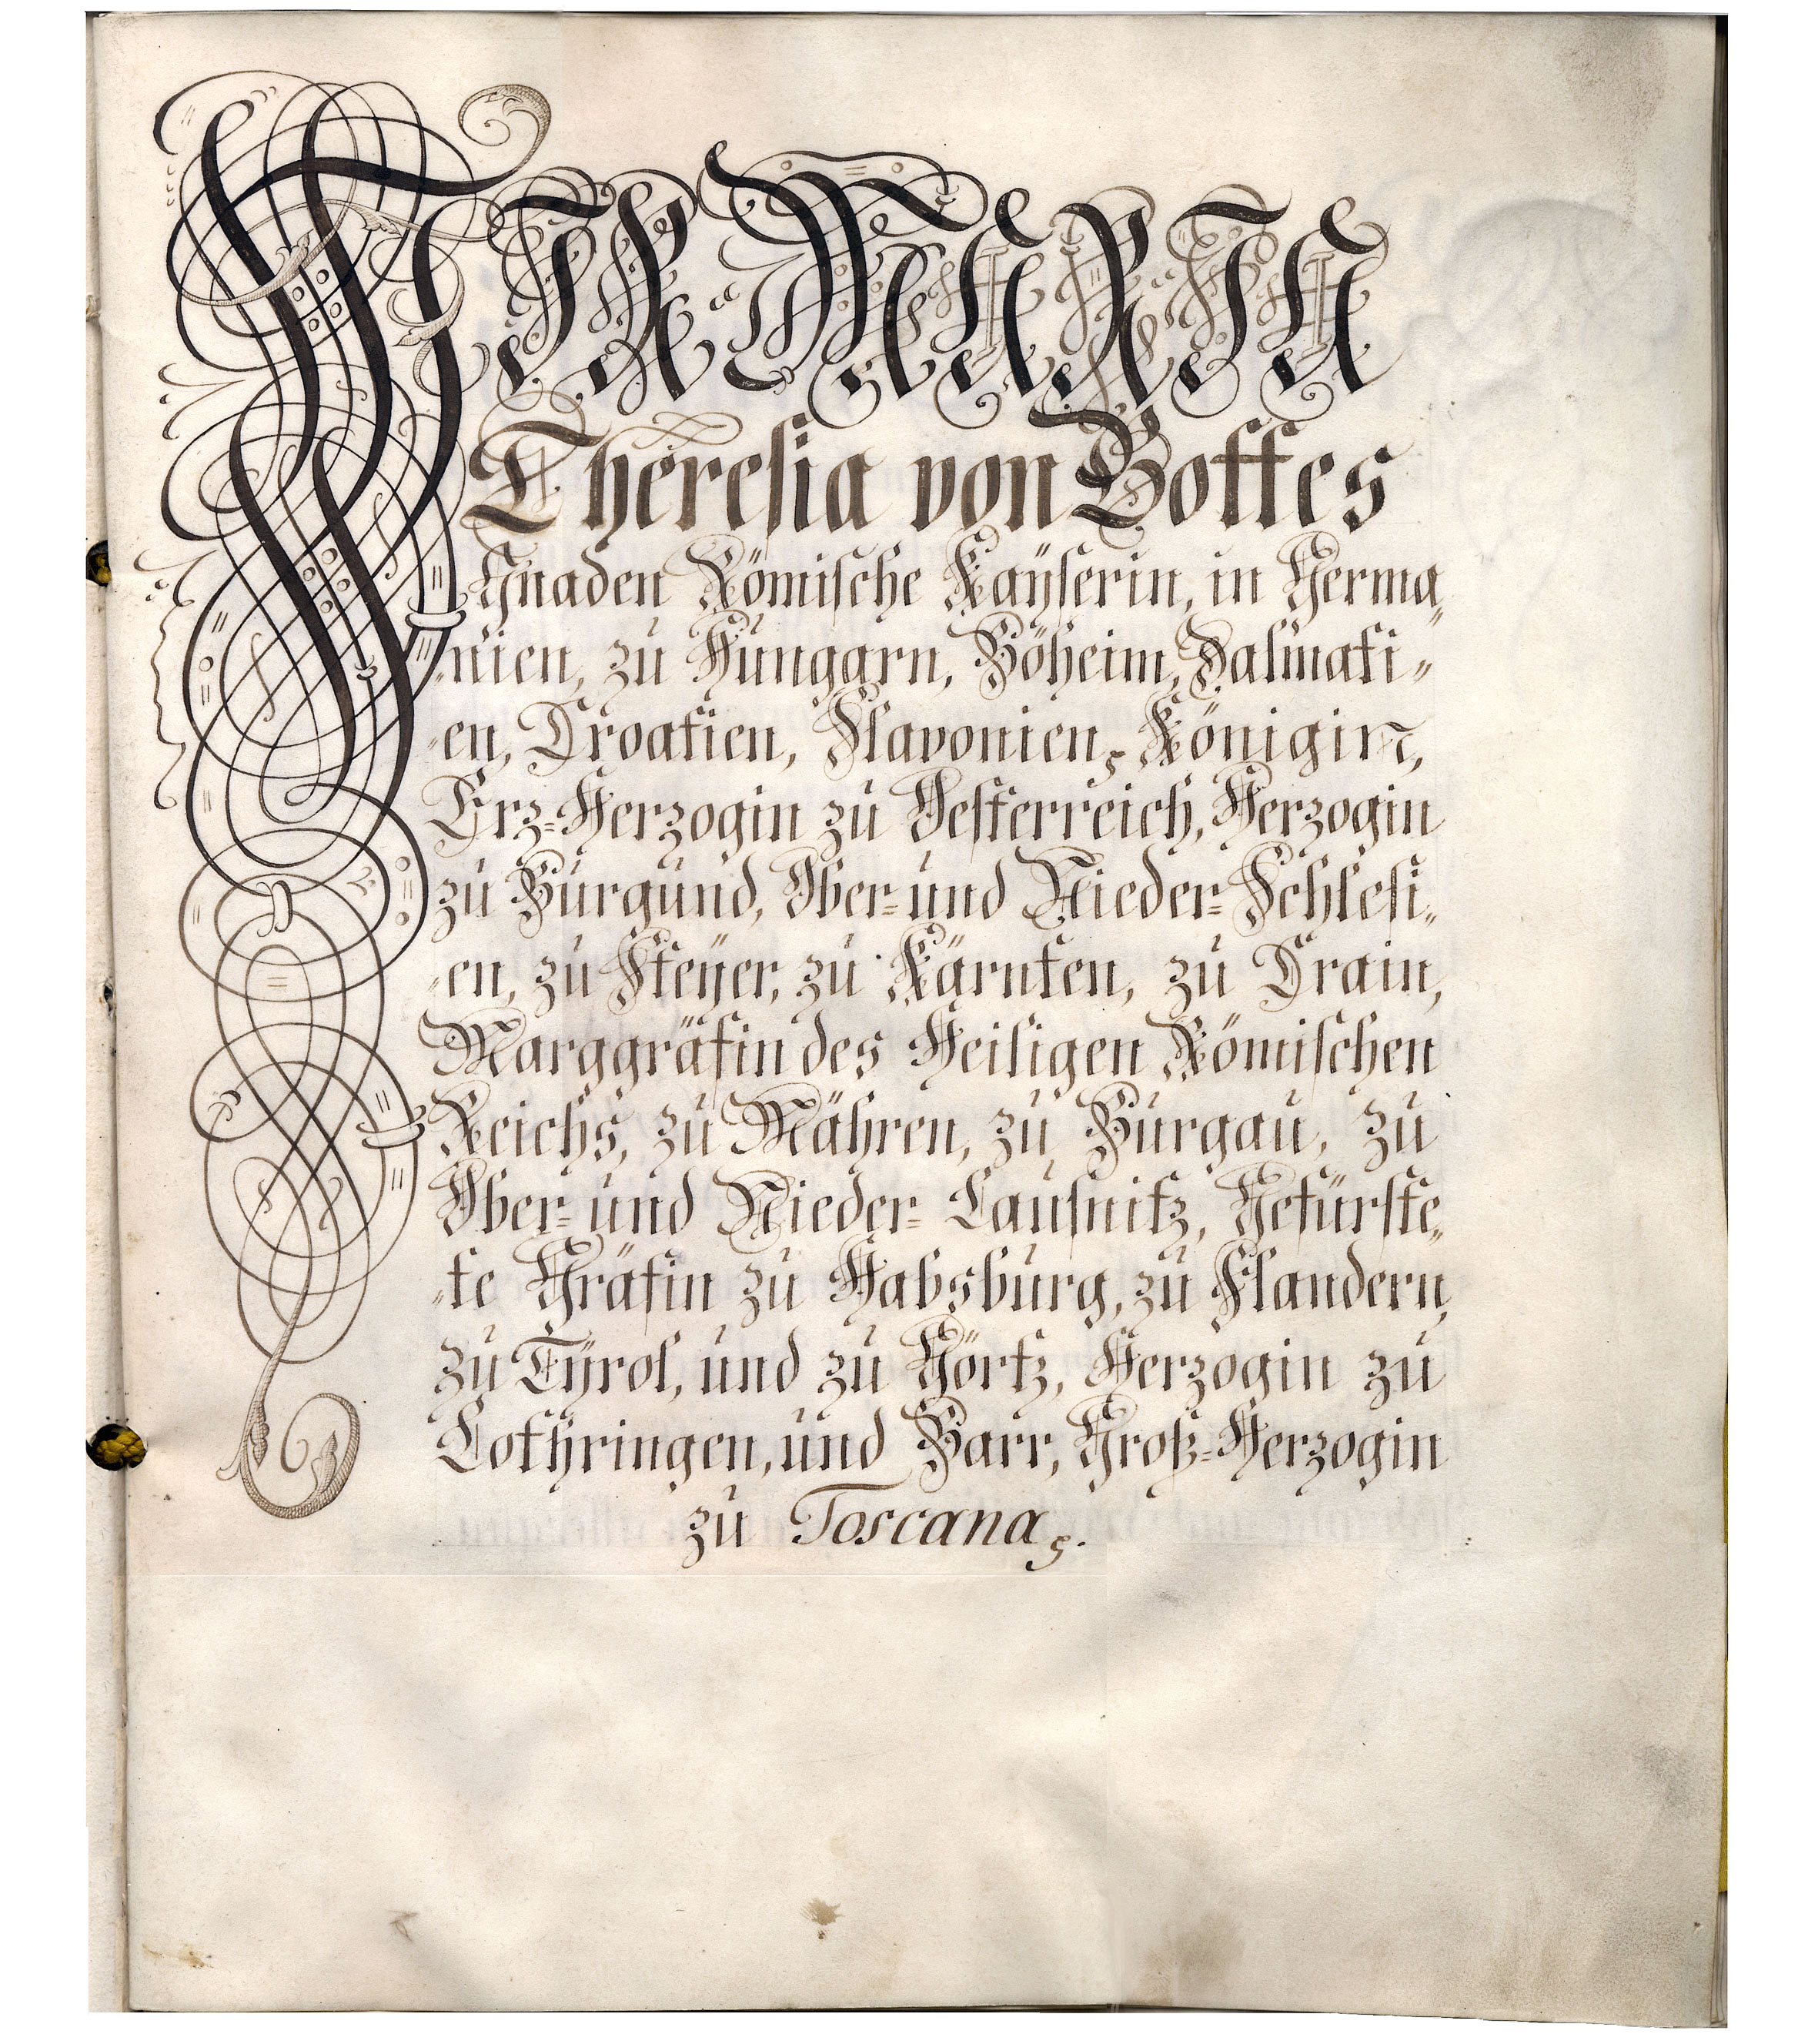 WIR MARIA
Theresia von Gottes
Gnaden Römische Kaÿserin, in Germa„
„nien, zu Hungarn, Böheim, Dalmati„
„en, Croatien, Slavonien, Königin,
Erz=Herzogin zu Oesterreich, Herzogin
zu Burgund, Ober= und Nieder= Schlesi„
„en, zu Steÿer, zu Kärnten, zu Crain,
Marggräfin des Heiligen Römischen
Reichs, zu Mähren, zu Burgau, zu
Ober= und Nieder= Lausnitz, Gefürste„
„te Gräfin zu Habsburg, zu Flandern,
zu Tÿrol, und zu Görtz, Herzogin zu
Lothringen, und Barr, Groß=Herzogin
zu Toscana,.